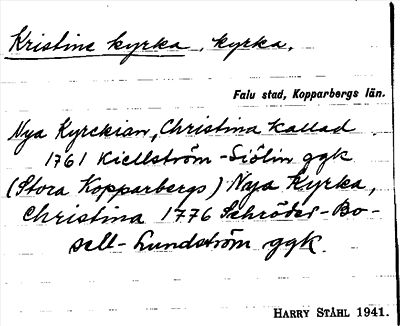 Kristine kyrka, kyrka.
Falu stad, Kopparbergs län.
Nya Kyrckian, Christina kallad
1761 Kiellström-Siölin ggk
(Stora Kopparbergs) Naja Kyrka,
Christina 1776 Schröder-Bo-
sell-Lundström ggk.
HARRY STÅHL 1941.